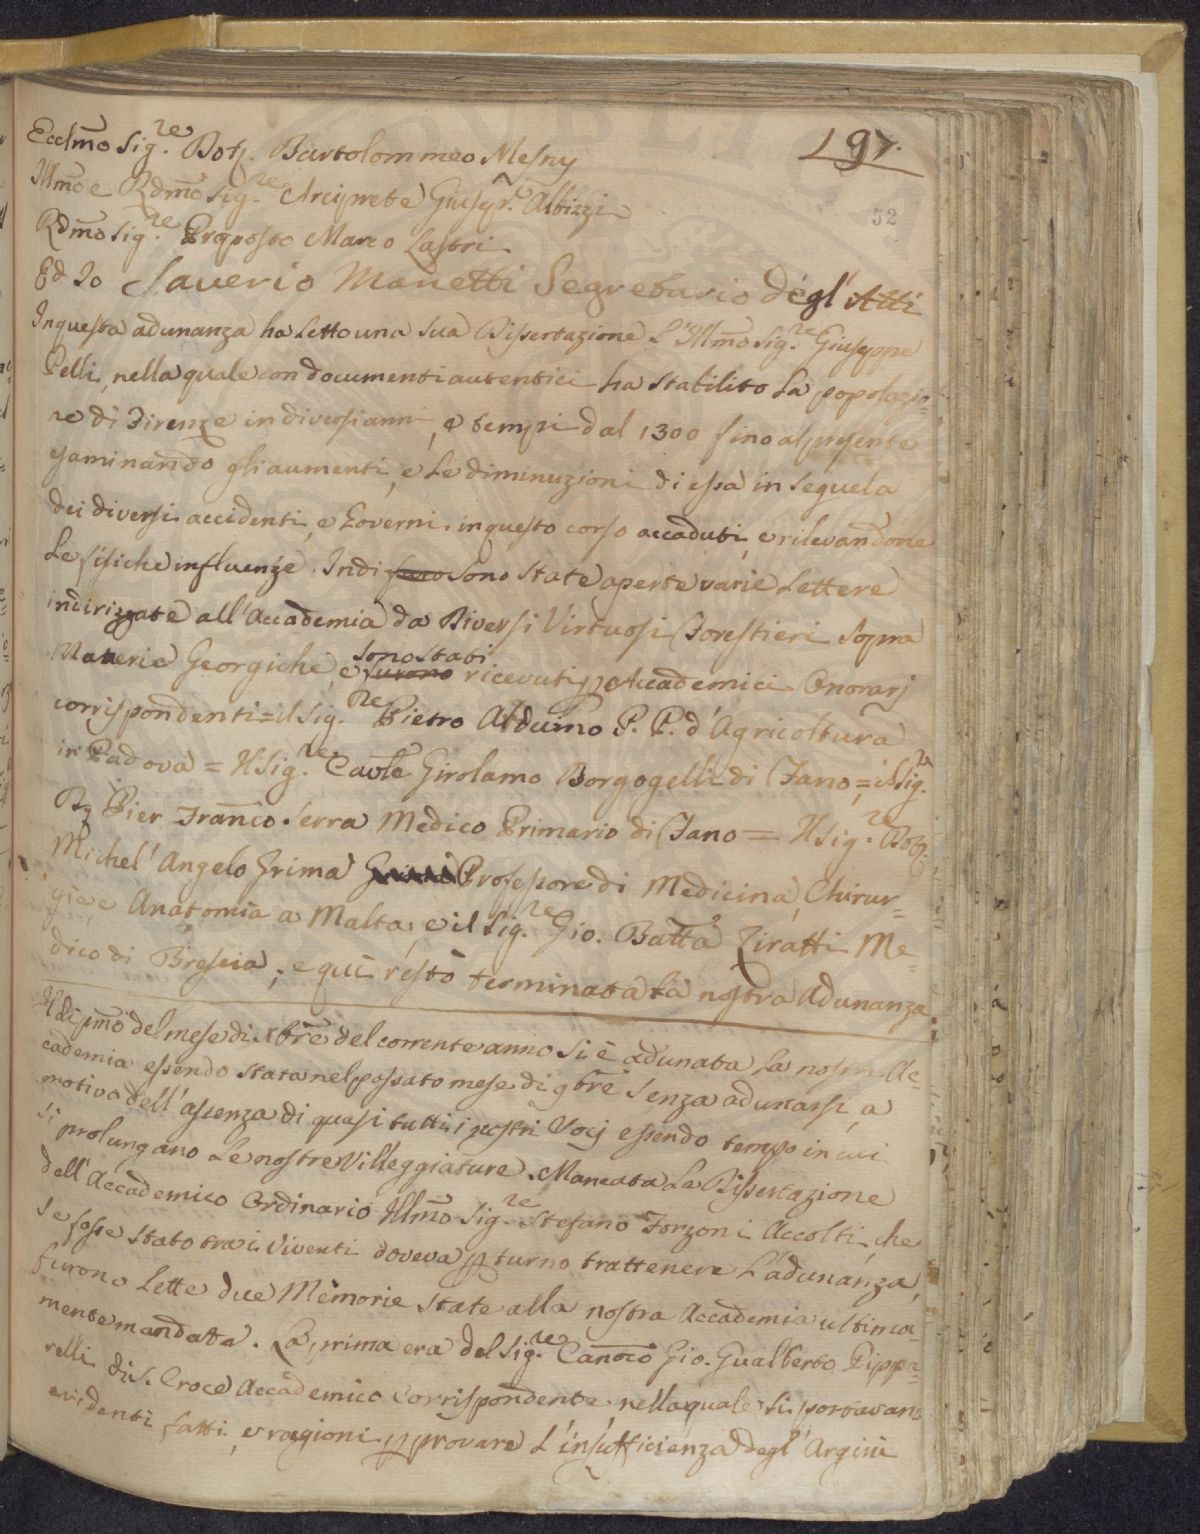 197.
52
Ecclmo Sig.re Dott. Bartolommeo Mesny
Illmo e Rdmo Sig.re Arciprete Giusep.e Albizzi
Rdmo Sig.re Proposto Marco Lastri
Ed Io Saverio Manetti Segretario degl'Atti
In questa adunanza ha letto una sua Dissertazione L'Illmo Sig.re Giuseppe
Pelli, nella quale con documenti autentici ha stabilito la popolazio=
ne di Firenze in diversi anni, e tempi dal 1300 fino al presente
esaminando gli aumenti, e le diminuzioni di essa in sequela
dei diversi accidenti, e Governi in questo corso accaduti, e rilevandone
le fisiche influenze. Indi sono state aperte varie Lettere
indirizzate all'Accademia da Diversi Virtuosi Forestieri sopra
Materie Georgiche, e furono sono stati ricevuti p Accademici Onorarj
corrispondenti = il Sig.re Pietro Arduino P. P. d'Agricoltura
in Padova = Il Sig.re Cavle Girolamo Borgogelli di Fano = il Sig.re
Dr Pier Franco Serra Medico Primario di Fano = Il Sig.re Dott.
Michel'Angelo Grima Professore di Medicina, Chirur=
gia e Anatomia a Malta, e il Sig.re Gio. Batta Ziratti Me=
dico di Brescia, e quì restò terminata la nostra Adunanza
Il dì pmo del mese di Xbre del corrente anno si è adunata la nostra Ac=
cademia essendo stata nel passato mese di 9bre senza adunarsi, a
motivo dell'assenza di quasi tutti i nostri Socj essendo tempo in cui
si prolungano le nostre Villeggiature. Mancata la Dissertazione
dell'Accademico Ordinario Illmo Sig.re Stefano Forzoni Accolti, che
se fosse stato tra i Viventi doveva p turno trattenere l'adunanza,
furono lette due Memorie state alla nostra Accademia ultima=
mente mandate. La prima era del Sig.re Canoco Gio. Gualberto Pippa=
relli di S. Croce Accademico Corrispondente, nella quale si portavano
evidenti fatti, e ragioni p provare l'insufficienza degl'Argini